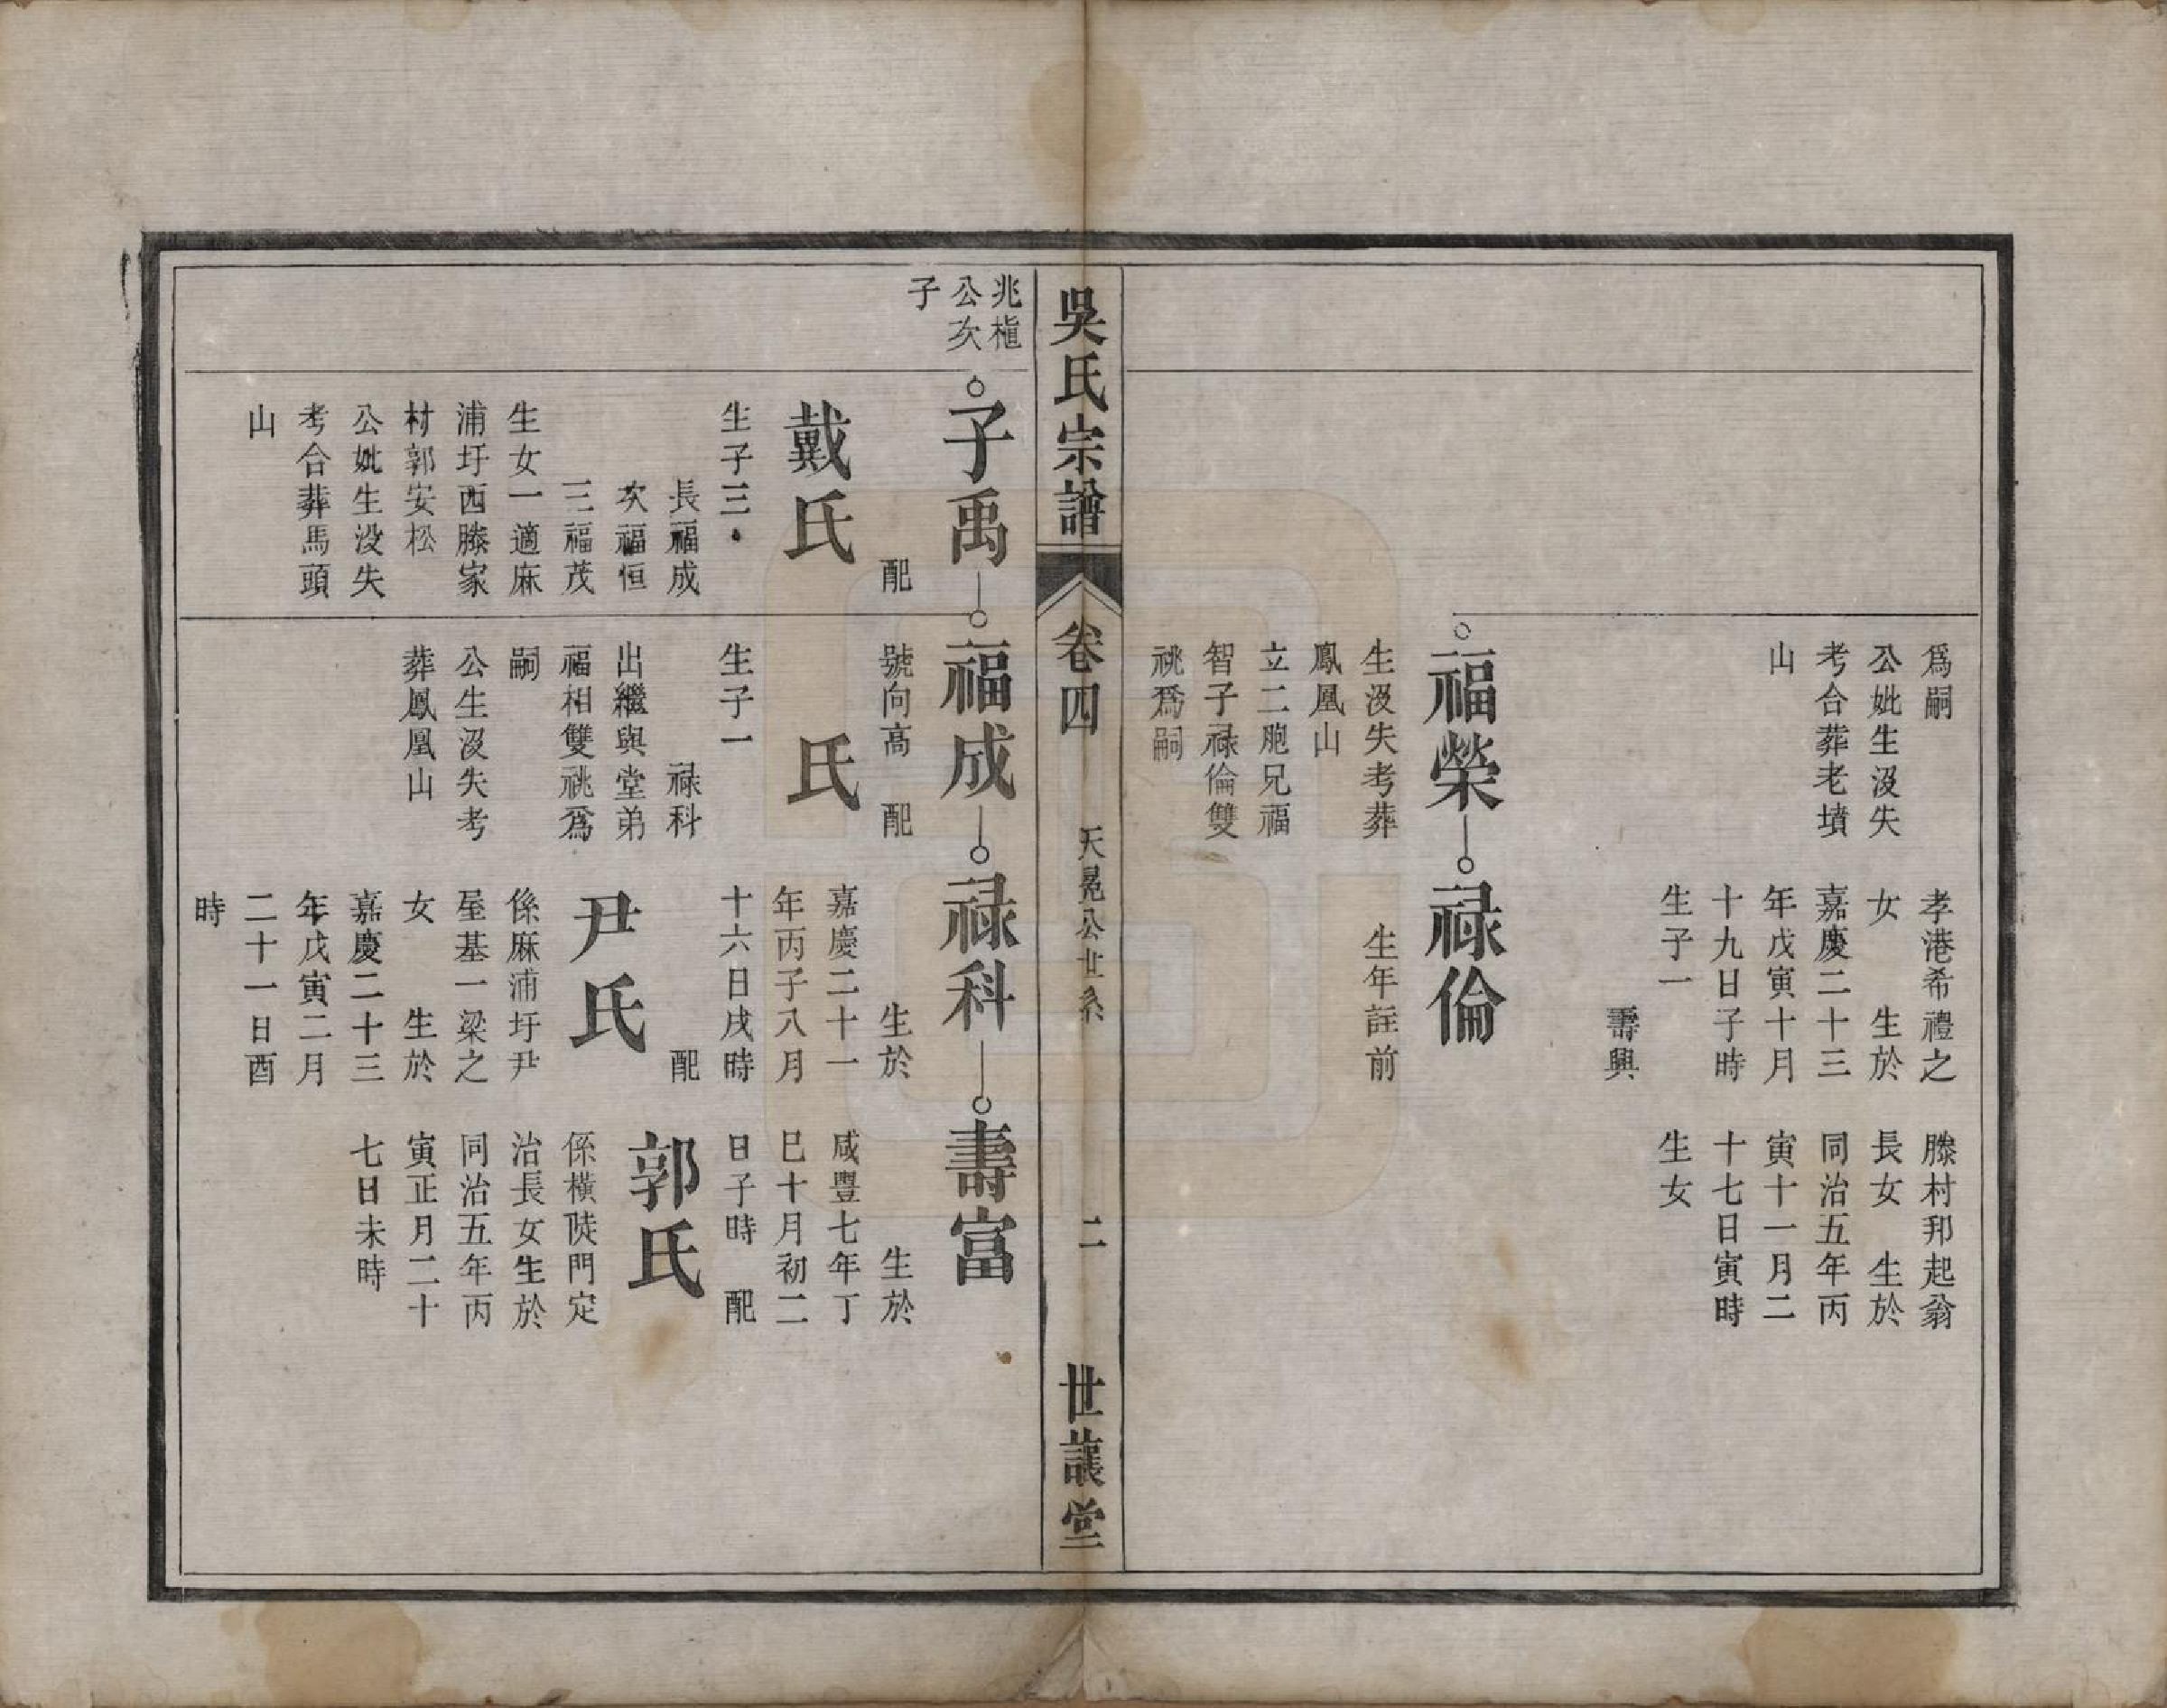 爲嗣
公妣生沒失
考合葬老墳
山
孝港希禮之
女　生於
嘉慶二十三
年戊寅十月
十九日子時
生子一
壽興
滕村邦起翁
長女　生於
同治五年丙
寅十一月二
十七日寅時
生女
福榮
生沒失考葬
鳳凰山
立二胞兄福
智子祿倫雙
祧爲嗣
祿倫
生年註前
吳氏宗譜
卷四
天冕公世系
二
世讓堂
兆
公次
子
子禹
配
戴氏
生子三
長福成
次福恒
三福茂
生女一適麻
浦圩西滕家
材郭安松
公妣生沒失
考合葬馬頭
山
福成
號向高　配
氏
生子一
祿科
出繼與堂弟
福相雙祧爲
嗣
公生沒失考
葬鳳凰山
祿科
生於
嘉慶二十一
年丙子八月
十六日戌時
配
尹氏
係麻浦圩尹
屋基一梁之
女　生於
嘉慶二十三
年戊寅二月
二十一日酉
時
壽富
生於
咸豐七年丁
巳十月初二
日子時　配
郭氏
係橫陡門定
治長女生於
同治五年丙
寅正月二十
七日未時